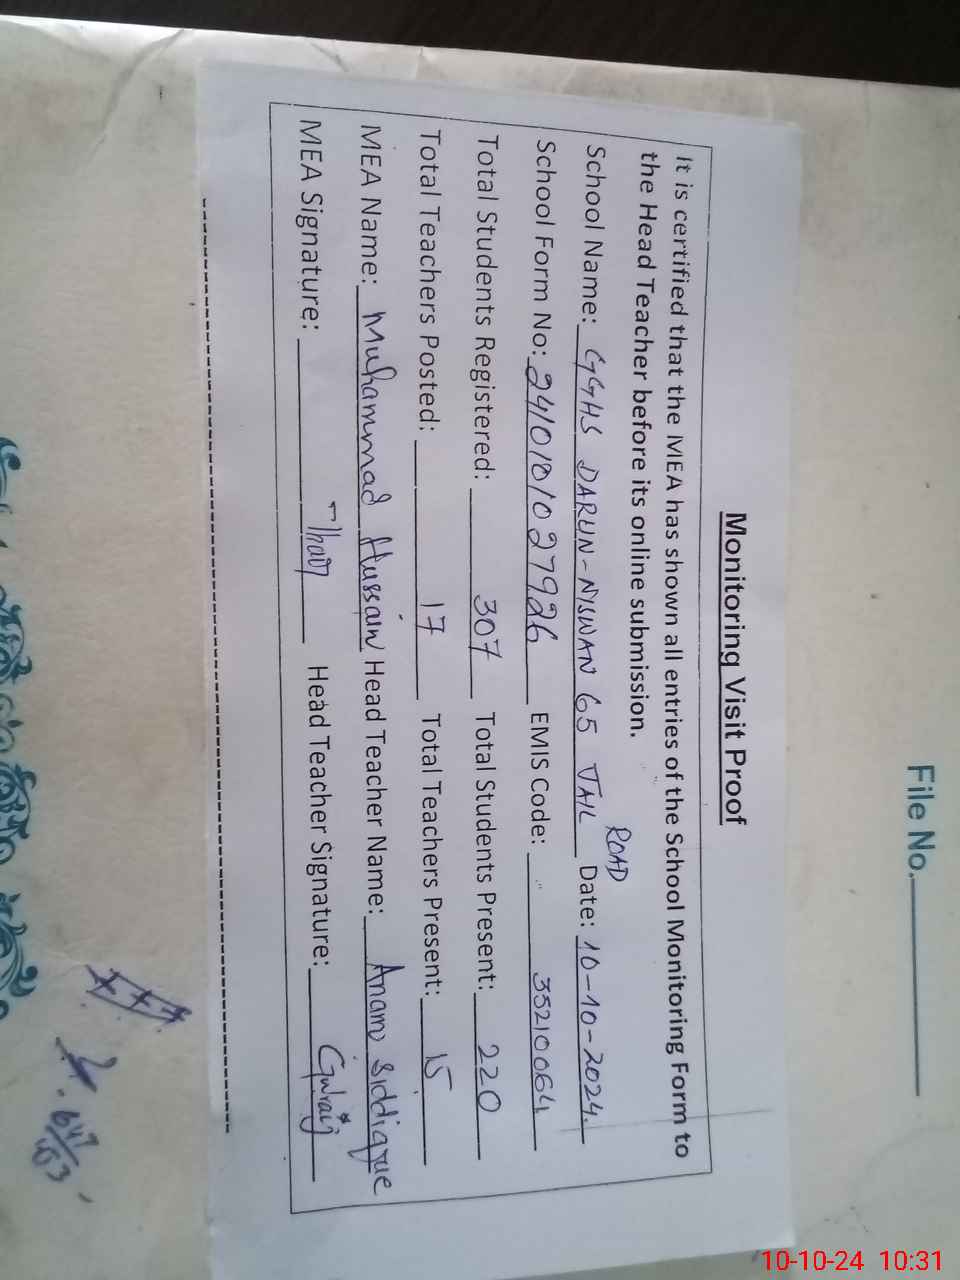 File No.
Monitoring Visit Proof
It is certified that the MEA has shown all entries of the School Monitoring Form to
the Head Teacher before its online submission.
School Name: GGHS DARUN-NISWAN 65 JAIL ROAD Date: 10-10-2024.
School Form No: 2410101027926 EMIS Code: 35210064
Total Students Registered: 307 Total Students Present: 220
Total Teachers Posted: 17 Total Teachers Present: 15
MEA Name: Muhammad Hussain Head Teacher Name: Anam Siddique
MEA Signature: Head Teacher Signature:
10-10-24 10:31